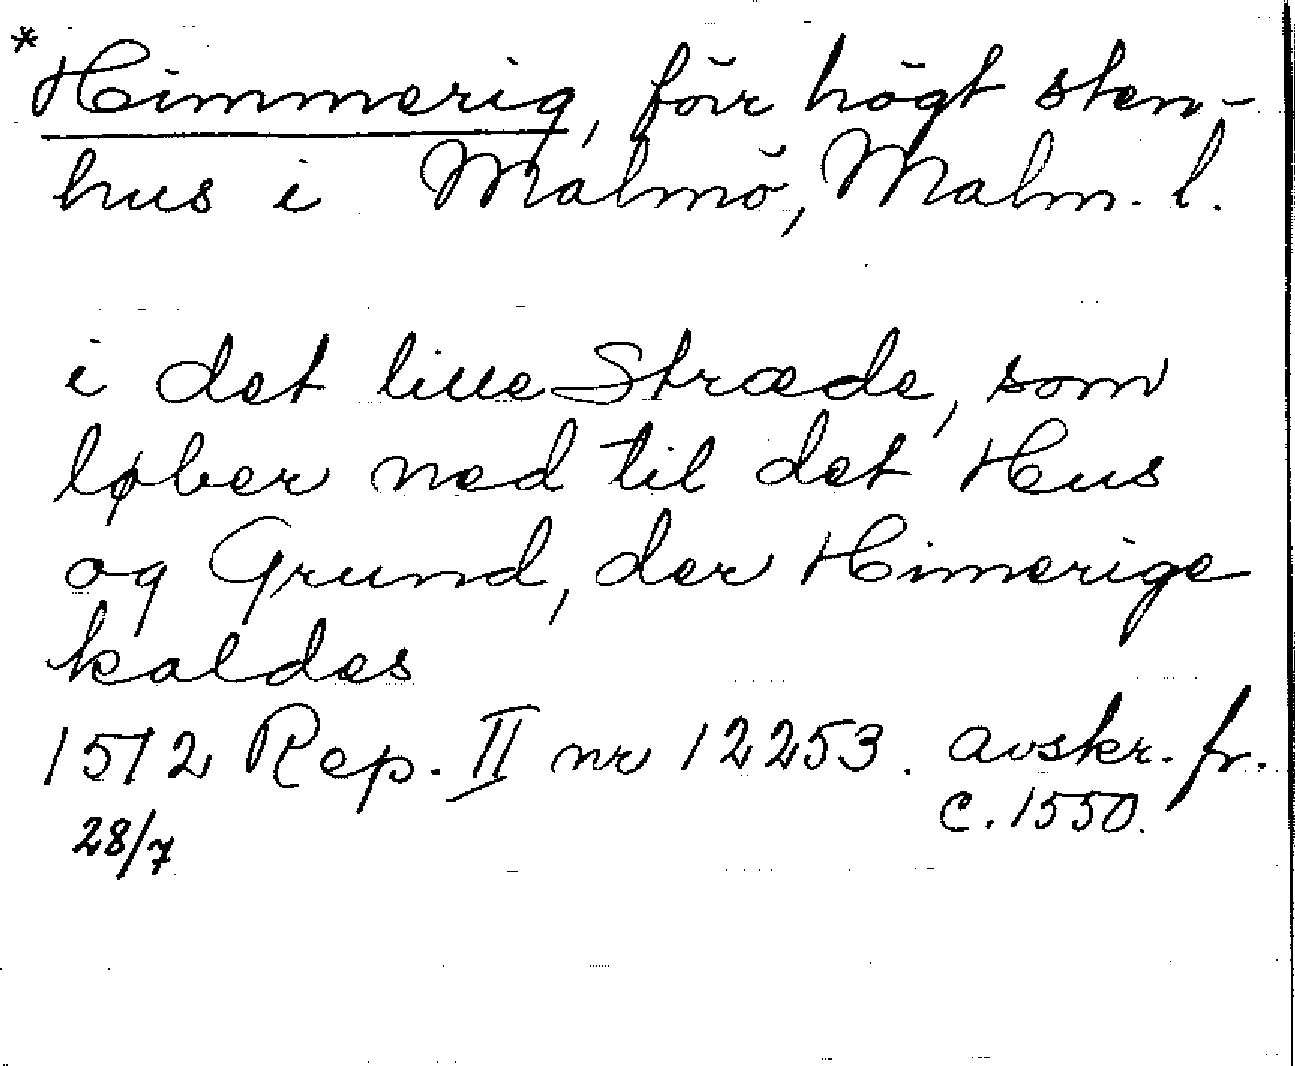 *Himmerig, förr högt sten-
hus i Malmö, Malm. l.
i det lille Stræde, som
løber ned til det Hus
og Grund, der Himerige
kaldes
1512 Rep. II nr 12253. avskr. fr.
c. 1550.
28/7